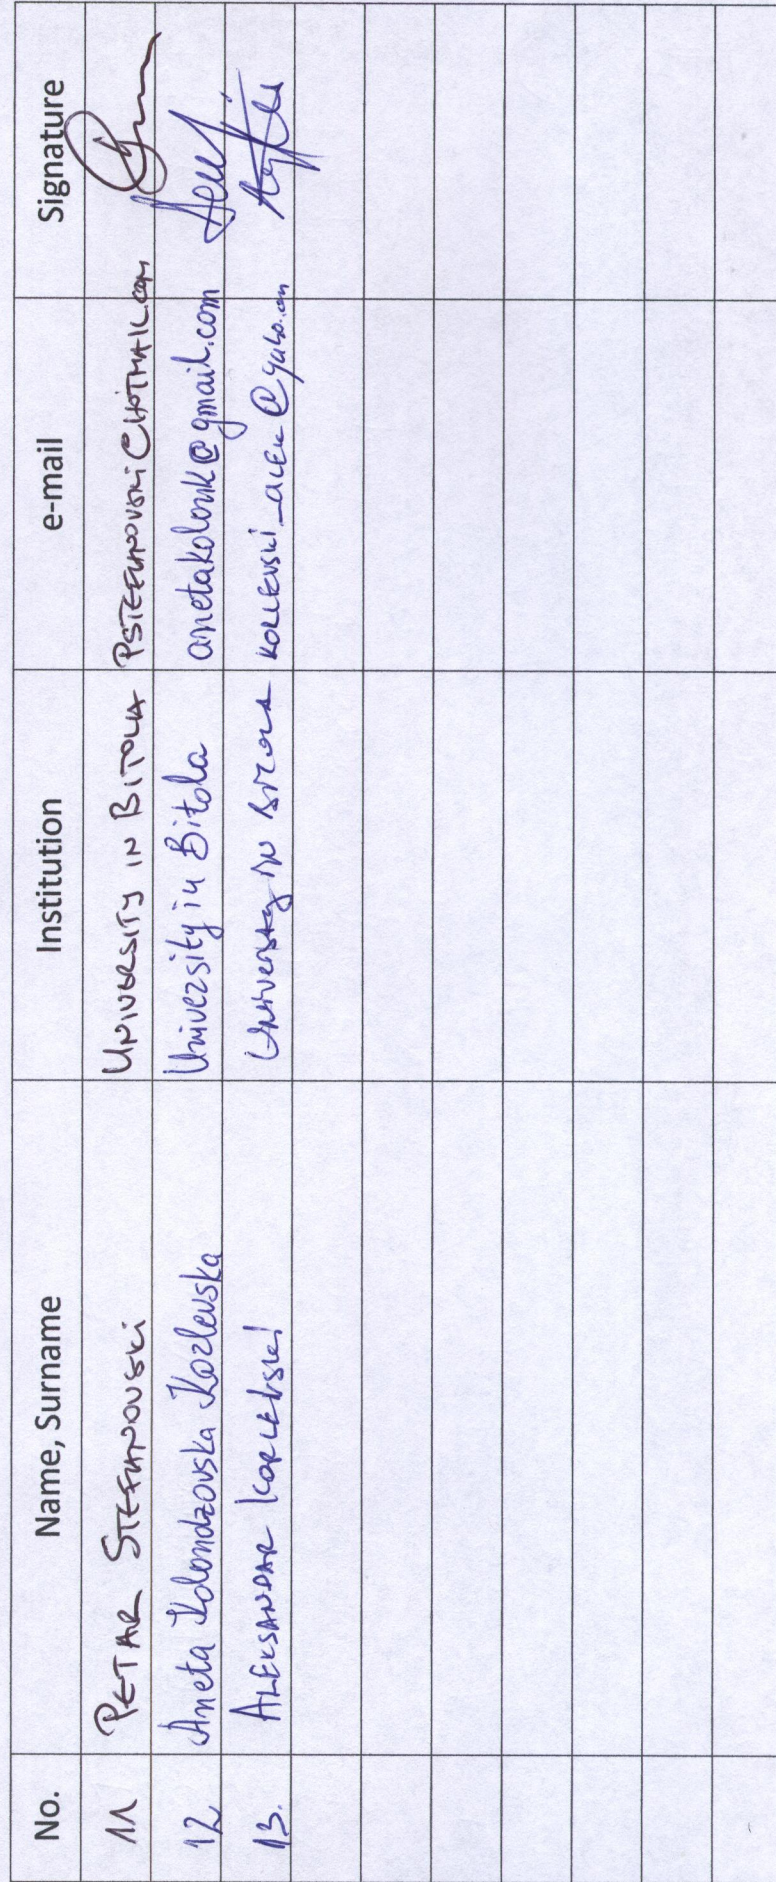 No. Name, Surname Institution e-mail Signature
11 PETAR STEFANOVSKI UNIVERSITY IN BITOLA PSTEFANOVSKI@HOTMAIL.COM
12 Aneta Kolondzovska Kozlevska University in Bitola anetakolonk@gmail.com
13. ALEKSANDAR University IN BITOLA